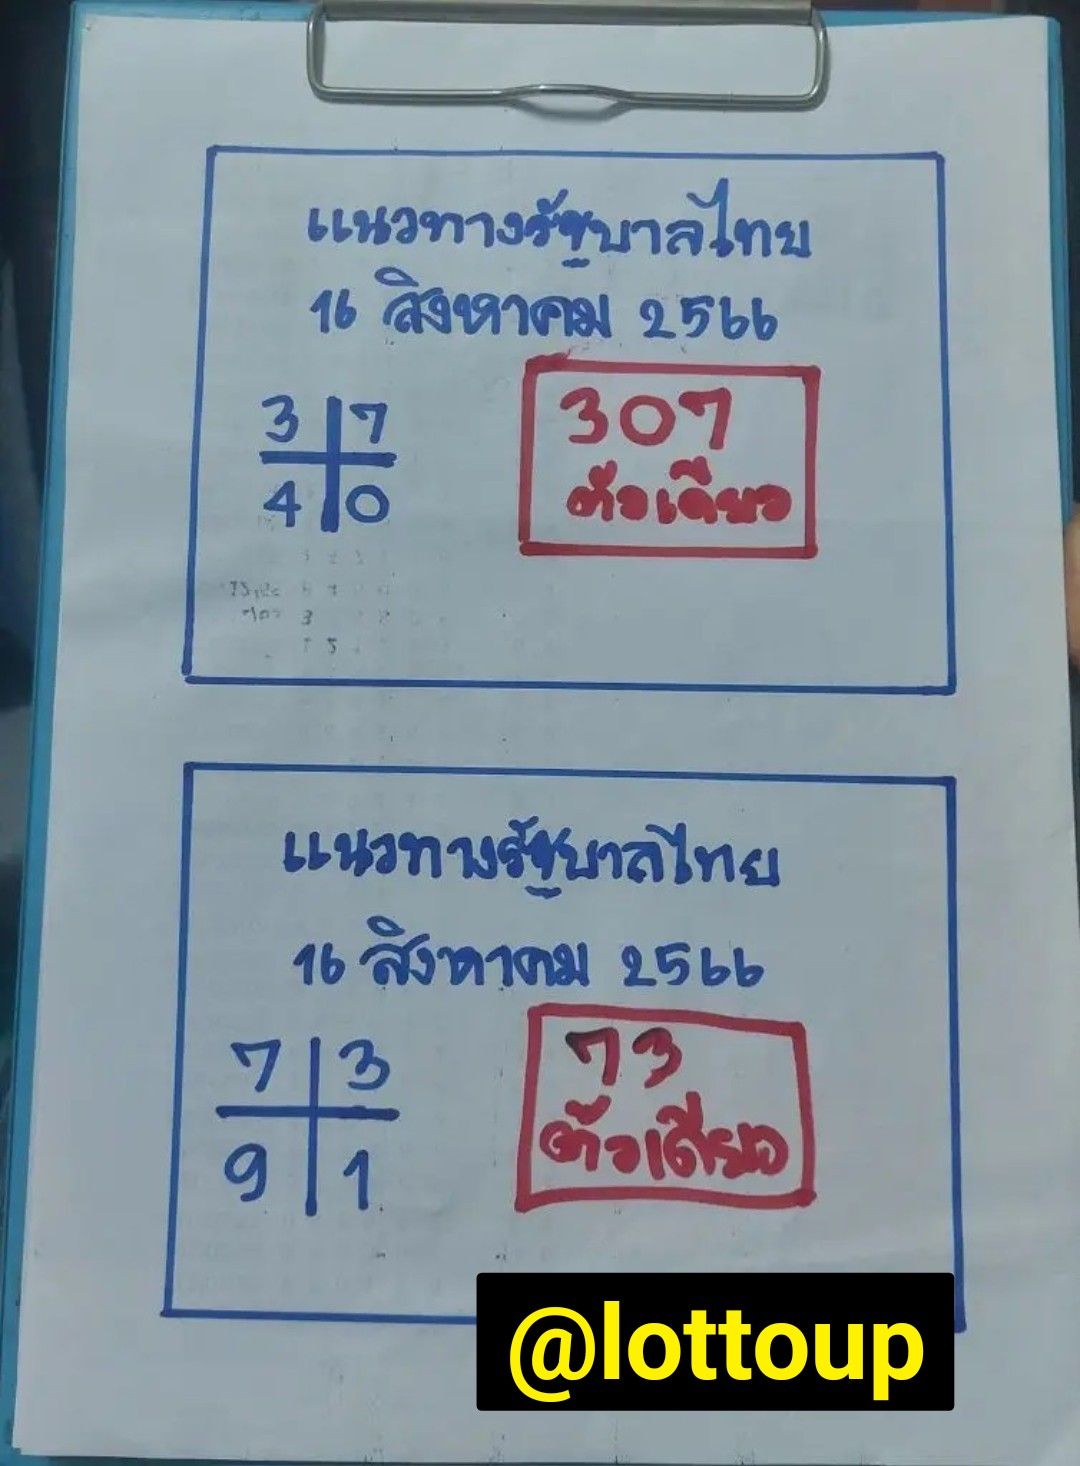 แนวทางรัฐบาลไทย
16 สิงหาคม 2566
3 7
4 0
307
ตัวเดียว
แนวทางรัฐบาลไทย
16 สิงหาคม 2566
7 3
9 1
73
ตัวเดียว
@lottoup